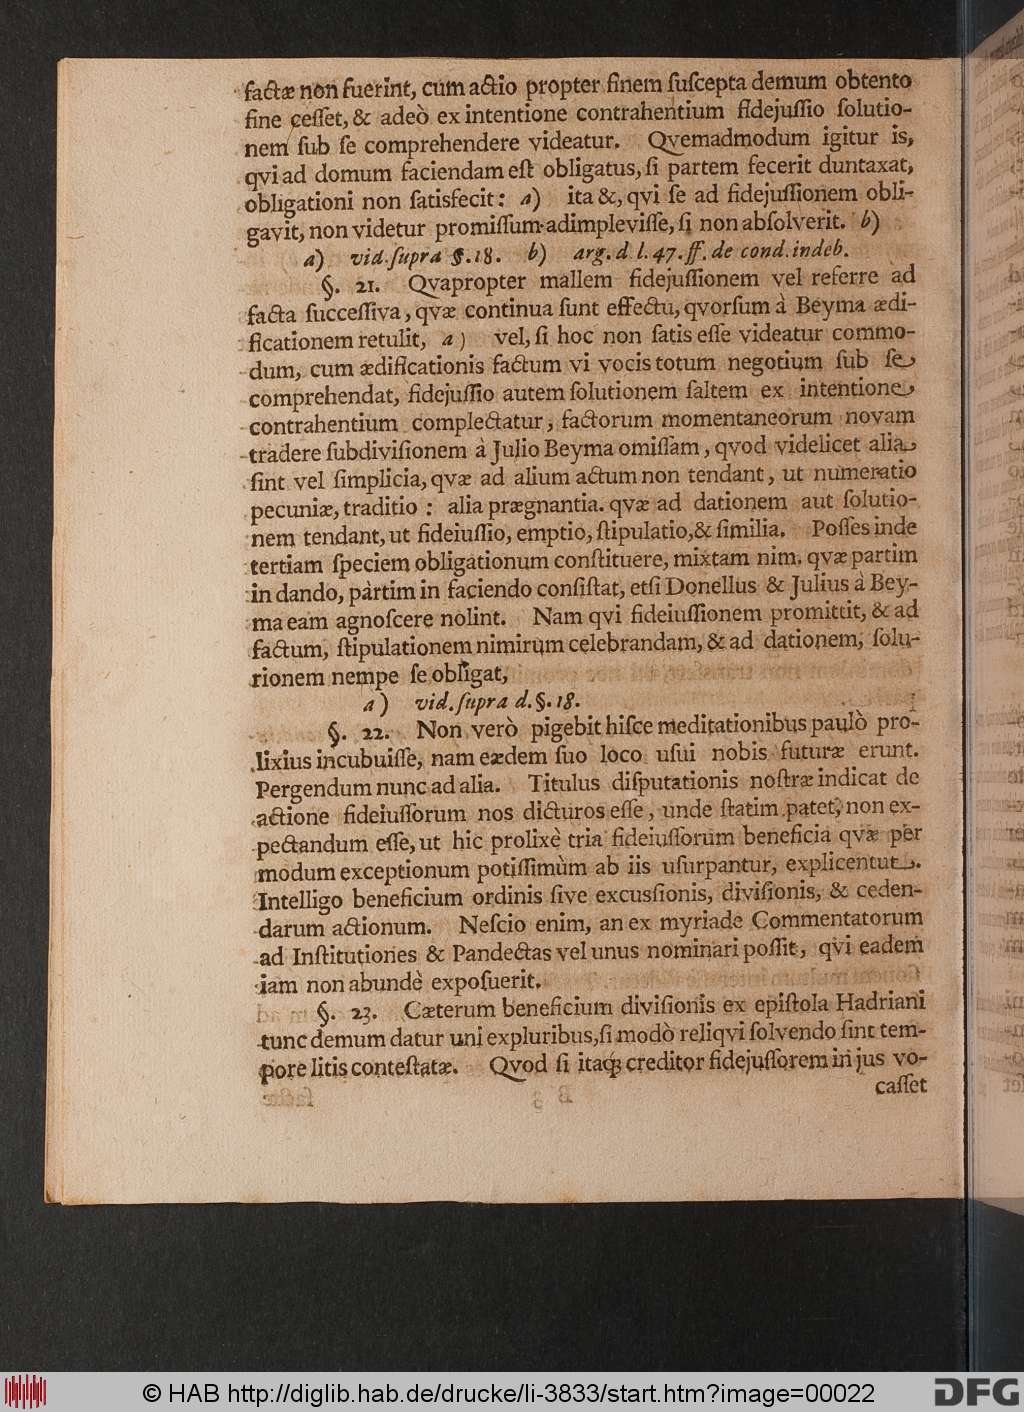 factæ non fuerint, cum actio propter finem ſuſcepta demum obtento
fine ceſſet, & adeò ex intentione contrahentium fidejuſſio ſolutio-
nem ſub ſe comprehendere videatur. Qvemadmodum igitur is,
qvi ad domum faciendam eſt obligatus, ſi partem fecerit duntaxat,
obligationi non ſatisfecit: a) ita &, qvi ſe ad fidejuſſionem obli-
gavit, non videtur promiſſum adimpleviſſe, ſi non abſolverit. b)
a) vid. ſupra §. 18. b) arg. d l. 47. ff. de cond. indeb.
§. 21. Qvapropter mallem fidejuſſionem vel referre ad
facta ſucceſſiva, qvæ continua ſunt effectu, qvorſum à Beyma ædi-
ficationem retulit, a) vel, ſi hoc non ſatis eſſe videatur commo-
dum, cum ædificationis factum vi vocis totum negotium ſub ſe
comprehendat, fidejuſſio autem ſolutionem ſaltem ex intentione
contrahentium complectatur, factorum momentaneorum novam
tradere ſubdiviſionem à Julio Beyma omiſſam, qvod videlicet alia
ſint vel ſimplicia, qvæ ad alium actum non tendant, ut numeratio
pecuniæ, traditio: alia prægnantia. qvæ ad dationem aut ſolutio-
nem tendant, ut fideiuſſio, emptio, ſtipulatio, & ſimilia. Poſſes inde
tertiam ſpeciem obligationum conſtituere, mixtam nim. qvæ partim
in dando, partim in faciendo conſiſtat, etſi Donellus & Julius à Bey-
ma eam agnoſcere nolint. Nam qvi fideiuſſionem promittit, & ad
factum, ſtipulationem nimirum celebrandam, & ad dationem, ſolu-
tionem nempe ſe obligat,
a) vid. ſupra d. §. 18.
§. 22. Non verò pigebit hiſce meditationibus paulò pro-
lixius incubuiſſe, nam eædem ſuo loco uſui nobis futuræ erunt.
Pergendum nunc ad alia. Titulus diſputationis noſtræ indicat de
actione fideiuſſorum nos dicturos eſſe, unde ſtatim patet, non ex-
pectandum eſſe, ut hic prolixè tria fideiuſſorum beneficia qvæ per
modum exceptionum potiſſimùm ab iis uſurpantur, explicentur.
Intelligo beneficium ordinis ſive excusſionis, diviſionis, & ceden-
darum actionum. Neſcio enim, an ex myriade Commentatorum
ad Inſtitutiones & Pandectas vel unus nominari poſſit, qvi eadem
iam non abundè expoſuerit.
§. 23. Cæterum beneficium diviſionis ex epiſtola Hadriani
tunc demum datur uni expluribus, ſi modò reliqvi ſolvendo ſint tem-
pore litis conteſtatæ. Qvod ſi itaq; creditor fidejuſſorem in jus vo-
caſſet
© HAB http://diglib.hab.de/drucke/li-3833/start.htm?image=00022
DFG